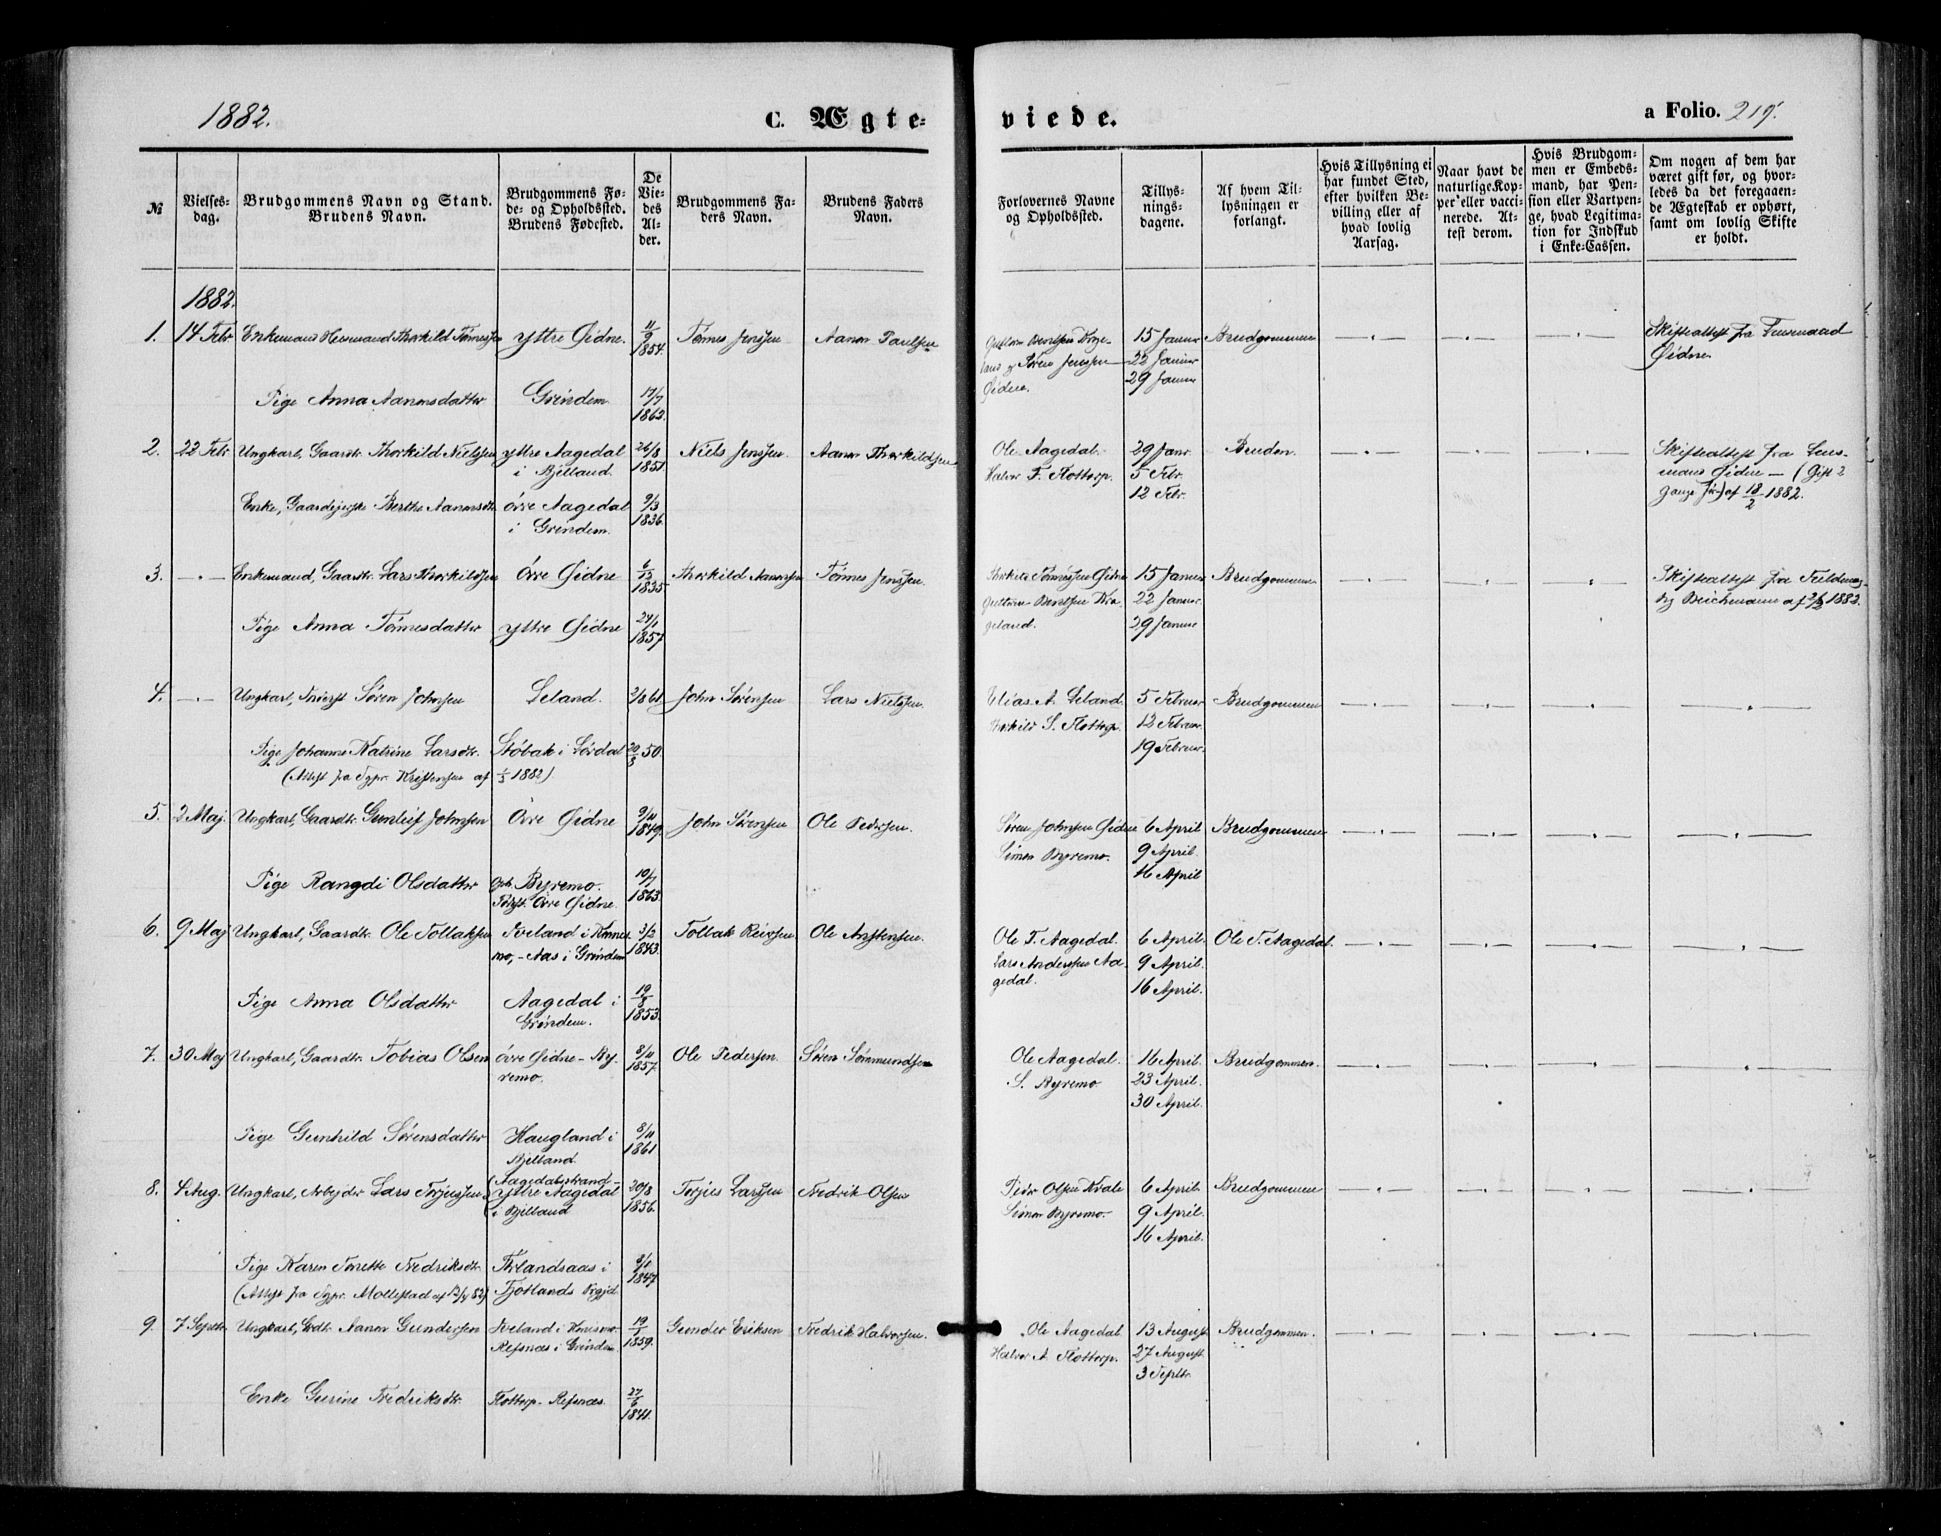 1882.
C. Ægte-
viede.
a Folio. 219.
№
Vielses-
dag.
Brudgommens Navn og Stand.
Brudens Navn.
Brudgommens Fø-
de- og Opholdssted.
Brudens Fødested.
De
Vie-
des
Al-
der.
Brudgommens Fa-
ders Navn.
Brudens Faders
Navn.
Forlovernes Navne
og Opholdssted.
Tillys-
nings-
dagene.
Af hvem Til-
lysningen er
forlangt.
Hvis Tillysning ei
har fundet Sted,
efter hvilken Be-
villing eller af
hvad lovlig
Aarsag.
Naar havt de
naturlige Kop-
per eller vacci-
nerede. At-
test derom.
Hvis Brudgom-
men er Embeds-
mand, har Pen-
sion eller Vartpen-
ge, hvad Legitima-
tion for Indskud
i Enke-Cassen.
Om nogen af dem har
været gift før, og hvor-
ledes da det foregaaen-
de Ægteskab er ophørt,
samt om lovlig Skifte
er holdt.
1882.
1. 14 Febr Enkemand Thorkild Tønnessen Yttre Øidne. 11/9 1854. Tønnes Jenssen Aanon Paulsen
Øidne. 15 Januar 22 Januar 29 Januar Brudgommen Skifteattest fra Lensmand
Øidne
Pige Anna Aanonsdatter Grindem 17/7 1862.
2. 22 Febr Ungkarl, Gaardbr. Thorkild Nielssen yttre Aagedal
i Bjelland. 26/8 1851 Niels Jenssen. Aanon Thorkildsen
Ole Aagedal.
Halvor T. Flottorp. 29 Janr. 5 Febr. 12 Febr. Bruden. Skifteattest fra Lens-
mand Øidne — (Gift 2
Gange før) af 18/2 1882.
Enke, Gaardejerske Berthe Aanonsdtr. øvre Aagedal
i Grindem. 9/3 1836.
3. Enkemand, Gaardbr. Lars Thorkildsen Øvre Øidne 6/12 1835 Thorkild Aanonsen Tønnes Jenssen.
Thorkild Tønnessen Øidne 15 Januar 22 Januar 29 Januar Brudgommen Skifteattest fra Fuldmæg-
tig Beichmann af 1882.
Pige Anna Tønnesdatter yttre Øidne 24/1 1857.
4. Ungkarl, Søren Johnsen Leland. 2/8 61. John Sørensen Lars Nielsen.
Elias A. Leland.
Thorkild S. Flottorp. 5 Februar 12 Februar. 19 Februar. Brudgommen
Pige Johanne Katrine Larsdtr. Støbak i Lørdal 20/3 50.
(Attest fra Sgpr. Kristensen af 1/3 1882)
5. 2 Maj. Ungkarl, Gaardbr. Gunleif Johnsen Øvre Øidne 9/11 1849. John Sørensen Ole Pedersen.
Søren Johnsen Øidne
Simon Byremo. 6 April 9 April. 16 April Brudgommen
Pige Rangdi Olsdatter Oph. Byremo.
Født. Øvre Øidne. 10/7 1863.
6. 9 Maj Ungkarl, Gaardbr. Ole Tollaksen Tveland i Konis-
mo, - Aas i Grindem 3/2 1843. Tollak Reiersen Ole Anstensen.
Ole T. Aagedal.
Lars Anderssen Aa-
gedal. 6 April. 9 April. 16 April. Ole T. Aagedal.
Pige Anna Olsdatter Aagedal i
Grindem. 19/8 1853.
7. 30 Maj Ungkarl, Gaardbr. Tobias Olsen øvre Øidne - By-
remo. 8/11 1857. Ole Pedersen. Søren Sømmundsen
Ole Aagedal.
S. Byremo 16 April. 23 April. 30 April. Brudgommen.
Pige Gunhild Sørensdatter Haugland i
Bjelland. 8/11 1861
8. 4 Aug. Ungkarl, Arbejder Lars Torjussen (Aagedalsstrand -
Yttre Aagedal
i Bjelland 20/8 1856. Torjus Larsen Fredrik Olsen
Peder Olsen Kvale
Simon Byremo. 6 April 9 April. 16 April. Brudgommen
Pige Karen Tonette Fredriksdtr. i
Fjotlands Prgjd. 8/1 1847
(Attest fra Sgpr. Mollestad af 82)
9. 7 Septbr. Ungkarl, Gdbr. Aanon Gundersen Tveland i Konismo
Refsnæs i Grindem. 19/1 1859. Gunder Eriksen Fredrik Halvorsen.
Ole Aagedal
Halvor A. Flottorp. 13 August 27 August. 3 Septbr. Brudgommen.
Enke Gurine Fredriksdtr. Flottorp - Refsnæs. 27/6 1841.